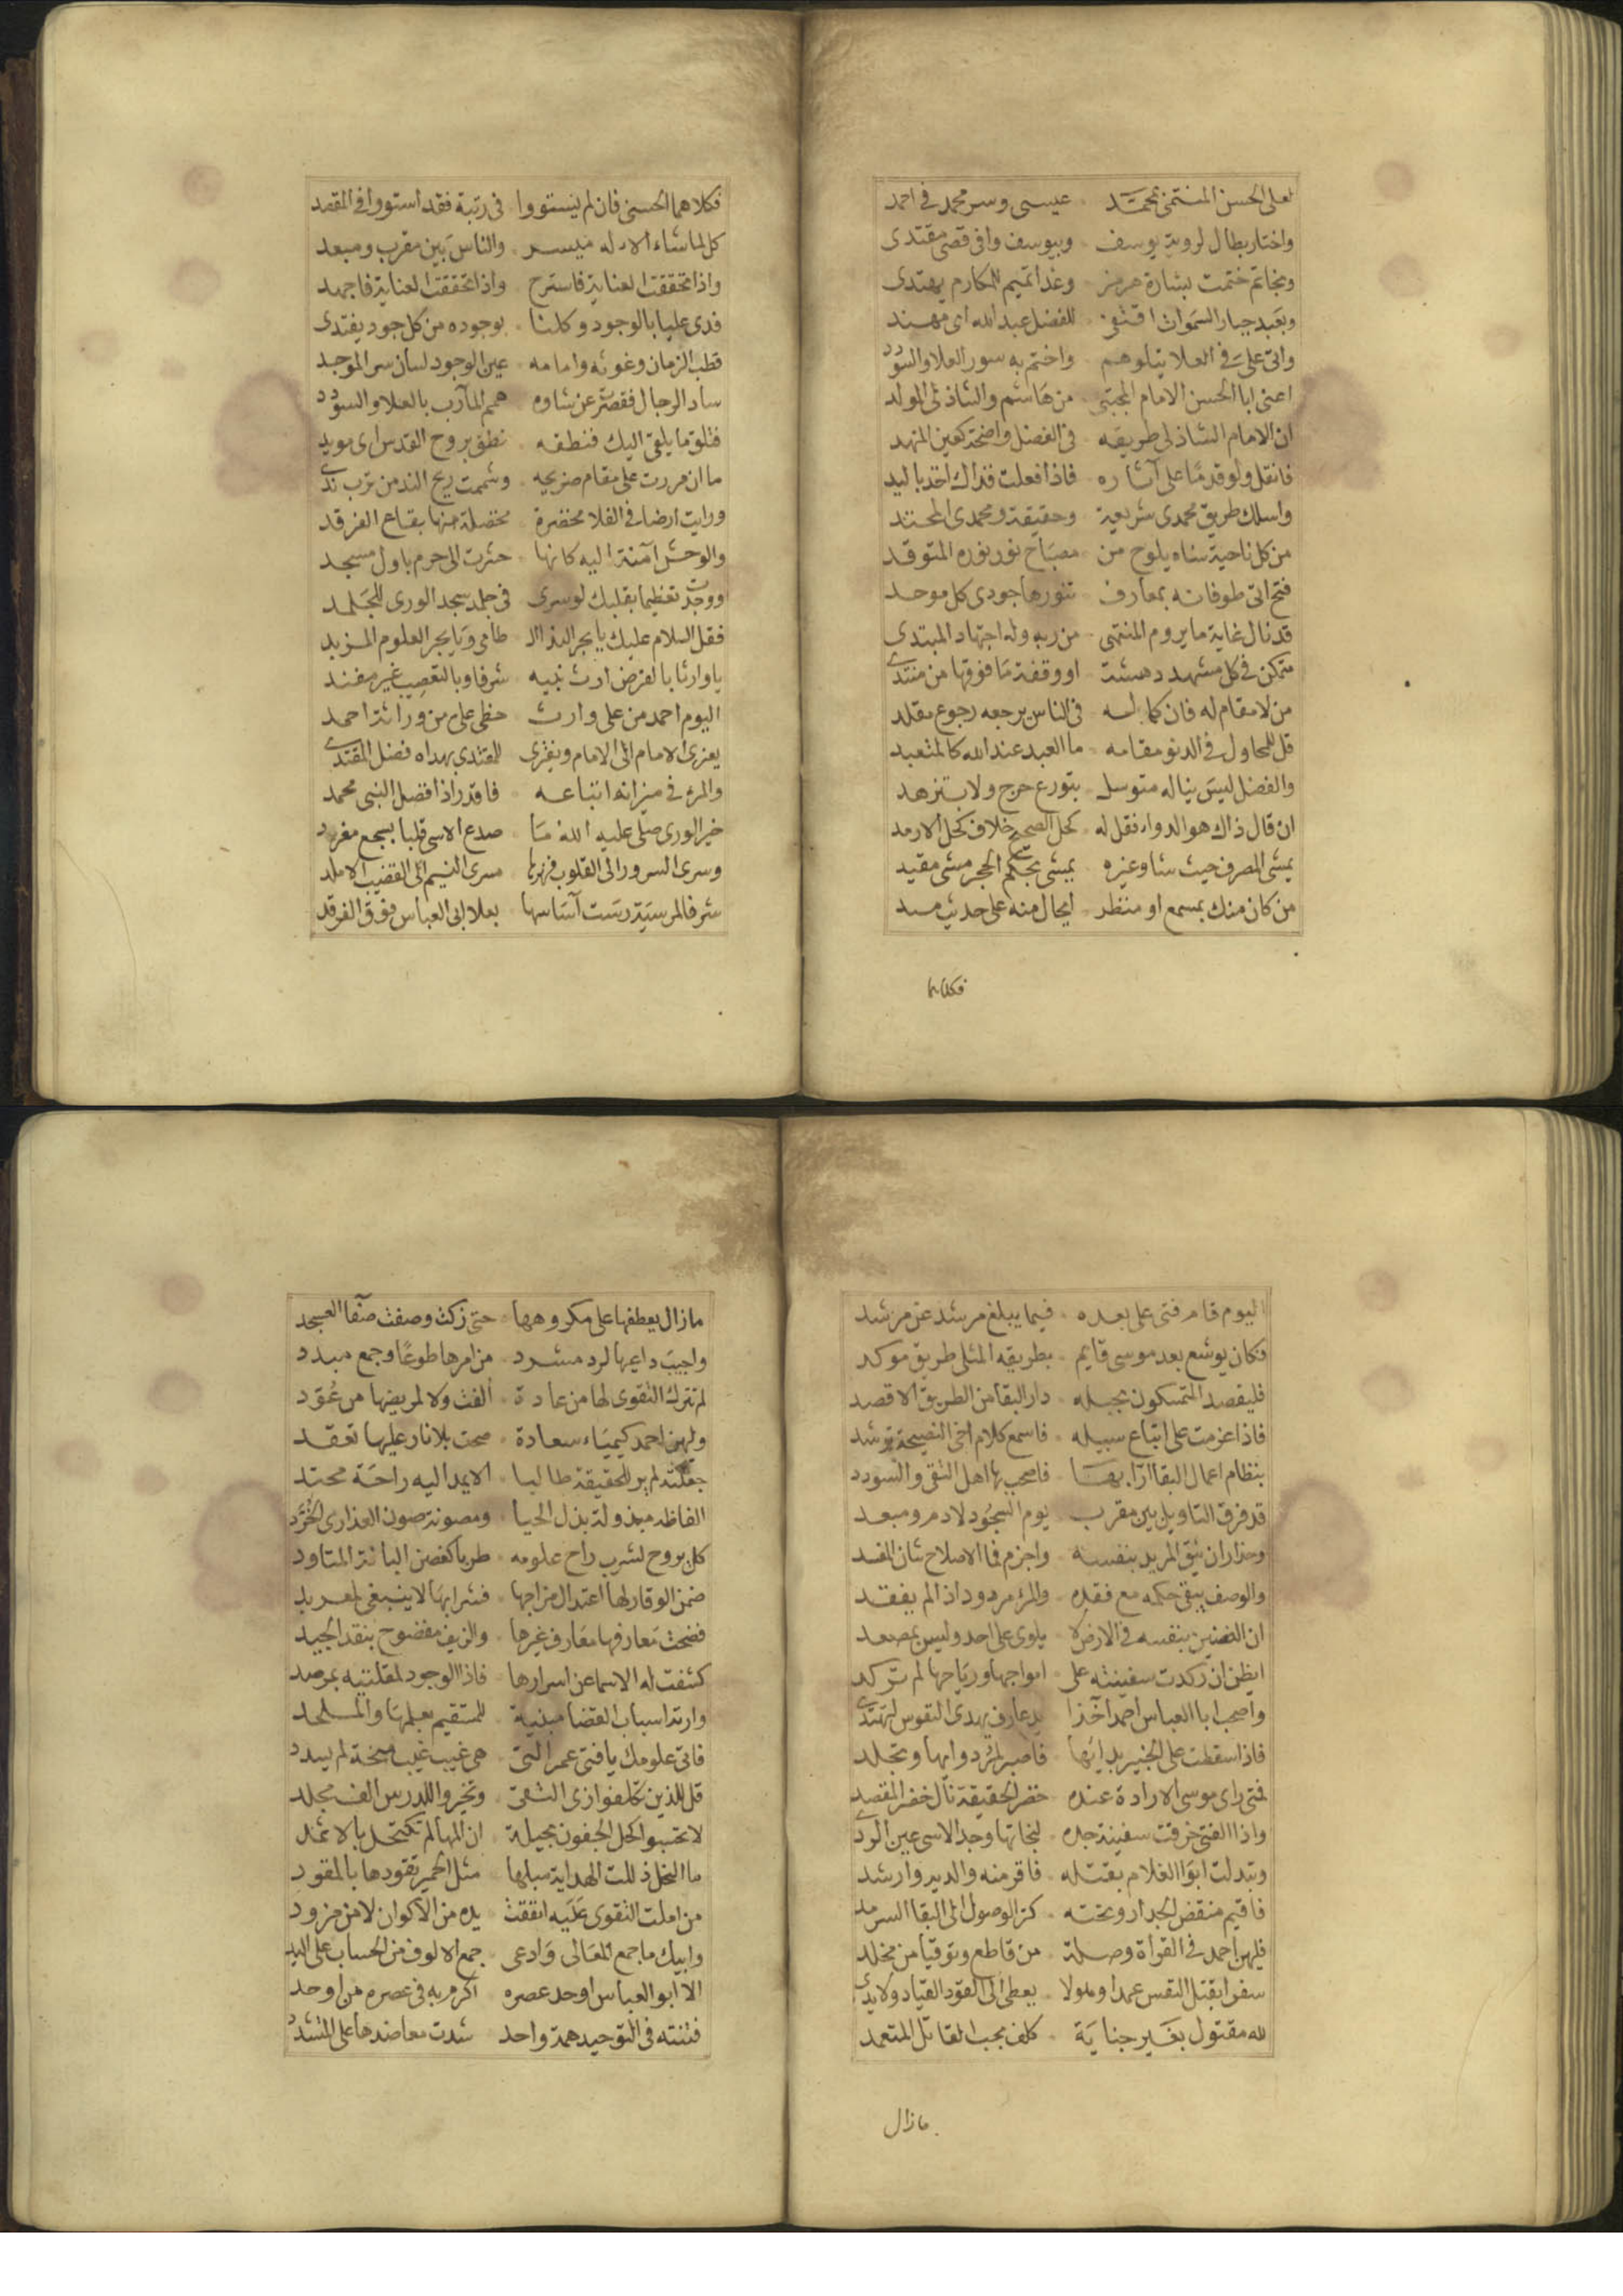 لعلى الحسن المنتمى بمحمد عيسى وسر محمد فى احمد
واختار بطال لروية يوسف وبيوسف وافى قصى مقتدى
وبخاتم ختمت بشارة هرمز وغدا تميم للمكارم يهتدى
وبعبد جبار السموات اقتفى للفضل عبد الله اى مهند
واتى على فى العلا يتلوهم واختم به سور العلا والسودد
اعنى ابا الحسن الامام المجتبى من هاشم والشاذلى المولد
ان الامام الشاذلى طريقه فى الفضل واضحة كعين المهتد
فانقل ولو قدما على آثاره فاذا فعلت فذاك اخذ باليد
واسلك طريق محمدى شريعة وحقيقة ومحمدى المحتد
من كل ناحية سناه يلوح من مصباح نور نوره المتوقد
فتح اتى طوفانه بمعارف تنورها جودى كل موحد
قد نال غاية ما يروم المنتهى من ربه وله اجتهاد المبتدى
متمكن فى كل مشهد دهشة او وقفة ما فوقها من منتدى
من لا مقام له فان كماله فى الناس يرجعه رجوع مقلد
قل للمحاول فى الدنو مقامه ما العبد عند الله كالمتعبد
والفضل ليس يناله متوسل بتورع حرج ولا بتزهد
ان قال ذاك هو الدواء فقل له كحل الصحيح خلاف كحل الارمد
يمشى المصرف حيث شا وغيره يمشى بحكم الحجر مشى مقيد
من كان منك بمسمع او منظر ايحال منه على حديث مسند
فكلاهما
فكلاهما الحسنى فان لم يستووا فى رتبة فقد استووا فى المقصد
كل لما شاء الاله ميسر والناس بين مقرب ومبعد
واذا تحققت العناية فاسترح واذا تحققت العناية فاجهد
فدى عليا بالوجود وكلنا بوجوده من كل جود يفتدى
قطب الزمان وغوثه وامامه عين الوجود لسان سر الموجد
ساد الرجال فقصرت عن شاوه همم المآرب بالعلا والسودد
فتلق ما يلقى اليك فنطقه نطق بروح القدس اى مويد
ما ان مررت على مقام ضريحه وشممت ريح الند من ترب ندى
ورايت ارضا فى الفلا مخضرة مخضلة منها بقاع الفرقد
والوحش آمنة اليه كانها حشرت الى حرم باول مسجد
ووجدت تعظيما بقلبك لو سرى فى جلمد سجد الورى للجلمد
فقل السلام عليك يا بحر الندا ال طامى ويا بحر العلوم المزبد
يا وارثا بالفرض ارث نبيه شرفا وبالتعصيب غير مفند
اليوم احمد من على وارث حظى على من وراثة احمد
يعزى الامام الى الامام ويقتدى للمقتدى بهداه فضل المقتدى
والمرء فى ميزانه اتباعه فاقدر اذا فضل النبى محمد
خير الورى صلى عليه الله ما صدع الاسى قلبا بسجع مغرد
وسرى السرور الى القلوب فهزها مسرى النسيم الى القضيب الاملد
شرفا لمرسية رست آساسها بعلا ابى العباس فوق الفرقد
اليوم قام فتى على بعده فيما يبلغ مرشد عن مرشد
فكان يوشع بعد موسى قايم بطريقه المثلى طريق موكد
فليقصد المتمسكون بحبله دار البقا من الطريق الاقصد
فاذا عزمت على اتباع سبيله فاسمع كلام اخى النصيحة ترشد
بنظام اعمال البقا ارابها فاصحب بها اهل التقى والسودد
قد فرق التاويل بين مقرب يوم السجود لادم ومبعد
وحذار ان يثق المريد بنفسه واجزم فما الاصلاح شان المفسد
والوصف يبقى حكمه مع فقده والمرء مردود اذا لم يفقد
ان الضنين بنفسه فى الارض لا يلوى على احد وليس بمصعد
ايظن ان ركدت سفينته على امواجها ورياحها لم تركد
واصحب ابا العباس احمد آخذا يد عارف بهدى النفوس لتهتدى
فاذا سقطت على الخبير بدائها فاصبر لمر دوائها وتجلد
لمتى راى موسى الارادة عنده خضر الحقيقة نال خضر المقصد
واذا الفتى خرقت سفينة جده لنجاتها وجد الاسى عين الردى
وتبدلت ابوا الغلام بقتله فاقر منه والدين وارشد
فاقيم منقض الجدار وتحته كنز الوصول الى البقا السرمد
فليهن احمد فى القراة وصلة من قاطع وتوقيا من مخلد
سفرا بقتل النفس عمدا ولا يعطى الى القود القياد ولا يدى
لله مقتول بغير جناية كلف بحب القاتل المتعمد
مازال
مازال يعطفها على مكروهها حتى زكت وصفت صفا العسجد
واجيب داعيها لرد مشرد من امرها طوعا وجمع مبدد
لم تترك التقوى لها من عادة الفت ولا لمريضها من عود
وليهن احمد كيمياء سعادة صحت بلا نار عليها تعقد
جعلته لم ير للحقيقة طالبا الا يمد اليه راحة محتد
الفاظه مبذولة بذل الحيا ومصونة صون العذارى الخرد
كل يروح لشرب راح علومه طربا كغصن البانة المتاود
ضمن الوقار لها اعتدال مزاجها فشرابها لا ينبغى لمعربد
فضحت معارفها معارف غيرها والزيف مفضوح بنقد الجيد
كشفت له الاسما عن اسرارها فاذا الوجود لمقلتيه بمرصد
وارته اسباب القضا مبنية للمستقيم بعلمها والملحد
فاتى علومك يا فتى عمر التى هى غيب غيب منحة لم يسدد
قل للذين تكلفوا زى التقى وتخيروا للدرس الف مجلد
لا تحسبوا كحل الجفون بحيلة ان المها لم تكتحل بالاثمد
ما النحل ذللت الهداية سبلها مثل الحمير تقودها بالمقود
من املت التقوى عليه انفقت يده من الاكوان لا من مزود
وابيك ما جمع المعالى وادعى جمع الالوف من الحساب على اليد
الا ابو العباس اوحد عصره اكرم به فى عصره من اوحد
فتنته فى التوحيد همة واحد شدت معاضدها على المتشدد